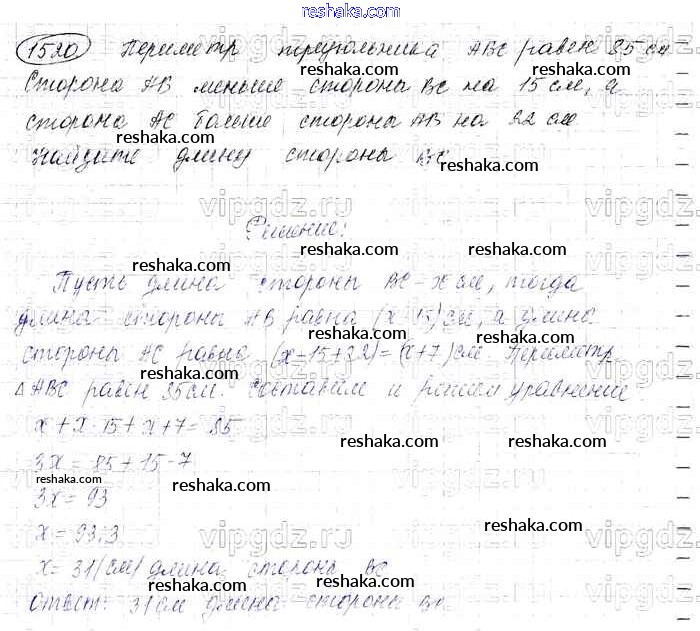 reshaka.com
1520 Периметр треугольника ABC равен 85 см
Сторона AB меньше стороны BC на 15 см, а
сторона AC больше стороны AB на 22 см
Найдите длину стороны BC
Решение:
Пусть длина стороны BC - x см, тогда
длина стороны AB равна (x-15) см, а длина
стороны AC равна (x-15+22)=(x+7) см. Периметр
△ABC равен 85 см. Составим и решим уравнение
x+x-15+x+7=85
3x=85+15-7
3x=93
x=93:3
x=31 (см) длина стороны BC
Ответ: 31 см длина стороны BC